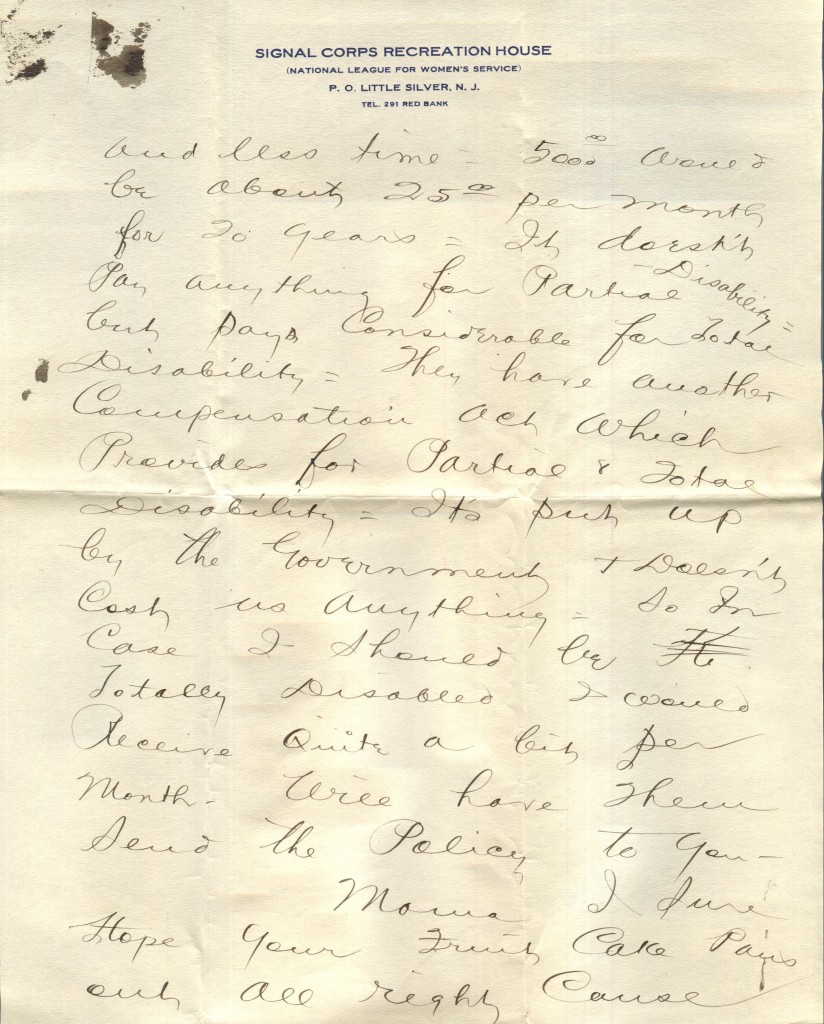 SIGNAL CORPS RECREATION HOUSE
(NATIONAL LEAGUE FOR WOMEN'S SERVICE)
P. O. LITTLE SILVER, N. J.
TEL. 291 RED BANK
and less time = 5000 00 would
be about 25 00 per month
for 20 years = It doesn't
Pay anything for Partial Disability =
but pays Considerable for Total
Disability = They have another
Compensation Act Which
Provides for Partial & Total
Disability = It's put up
by the Government + Doesn't
Cost us Anything = So In
Case I Should be
Totally Disabled I would
Receive Quite a bit per
Month - Will have them
Send the Policy to you -
Moma I Sure
Hope your Fruit Cake Pans
out All right Cause